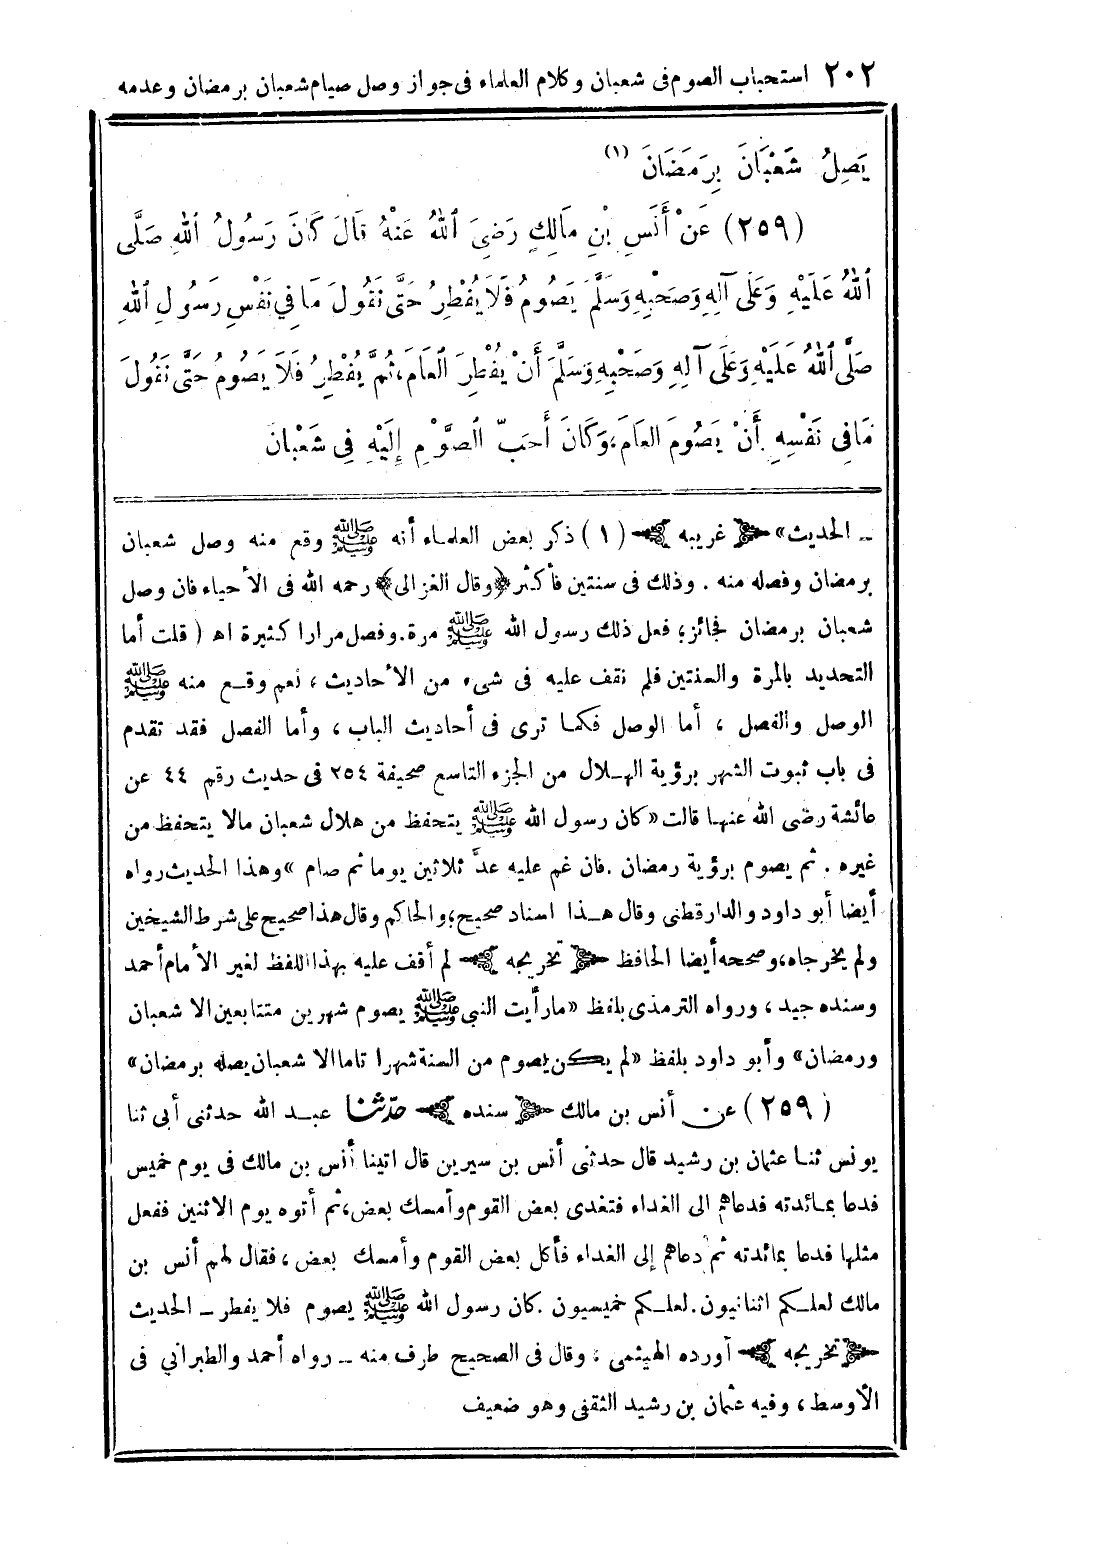 ٢٠٢ استحباب الصوم فى شعبان وكلام العلماء فى جواز وصل صيام شعبان برمضان وعدمه
يَصِلُ شَعْبَانَ بِرَمَضَانَ (١)
(٢٥٩) عَنْ أَنَسِ بْنِ مَالِكٍ رَضِيَ اللهُ عَنْهُ قَالَ كَانَ رَسُولُ اللهِ صَلَّى
اللهُ عَلَيْهِ وَعَلَى آلِهِ وَصَحْبِهِ وَسَلَّمَ يَصُومُ فَلَا يُفْطِرُ حَتَّى نَقُولَ مَا فِي نَفْسِ رَسُولِ اللهِ
صَلَّى اللهُ عَلَيْهِ وَعَلَى آلِهِ وَصَحْبِهِ وَسَلَّمَ أَنْ يُفْطِرَ الْعَامَ، ثُمَّ يُفْطِرُ فَلَا يَصُومُ حَتَّى نَقُولَ
مَا فِي نَفْسِهِ أَنْ يَصُومَ الْعَامَ، وَكَانَ أَحَبَّ الصَّوْمِ إِلَيْهِ فِي شَعْبَانَ
ـ الحديث» ﴿غريبه﴾ (١) ذكر بعض العلماء أنه ﷺ وقع منه وصل شعبان
برمضان وفصله منه . وذلك فى سنتين فأكثر ﴿وقال الغزالى﴾ رحمه الله فى الأحياء فان وصل
شعبان برمضان فجائز؛ فعل ذلك رسول الله ﷺ مرة. وفصل مرارا كثيرة اه (قلت أما
التحديد بالمرة والسنتين فلم نقف عليه فى شىء من الأحاديث ، نعم وقع منه ﷺ
الوصل والفصل ، أما الوصل فكما ترى فى أحاديث الباب ، وأما الفصل فقد تقدم
فى باب ثبوت الشهر برؤية الهلال من الجزء التاسع صحيفة ٢٥٤ فى حديث رقم ٤٤ عن
عائشة رضى الله عنها قالت «كان رسول الله ﷺ يتحفظ من هلال شعبان مالا يتحفظ من
غيره . ثم يصوم برؤية رمضان . فان غم عليه عدَّ ثلاثين يوما ثم صام » وهذا الحديث رواه
أيضا أبو داود والدارقطنى وقال هذا اسناد صحيح؛ والحاكم وقال هذا صحيح على شرط الشيخين
ولم يخرجاه، وصححه أيضا الحافظ ﴿تخريجه﴾ لم أقف عليه بهذا اللفظ لغير الأمام أحمد
وسنده جيد ، ورواه الترمذى بلفظ «مارأيت النبى ﷺ يصوم شهرين متتابعين الا شعبان
ورمضان» وأبو داود بلفظ «لم يكن يصوم من السنة شهرا تاما الا شعبان يصله برمضان»
(٢٥٩) عن أنس بن مالك ﴿سنده﴾ حدّثنا عبد الله حدثنى أبى ثنا
يونس ثنا عثمان بن رشيد قال حدثنى أنس بن سيرين قال اتينا أنس بن مالك فى يوم خميس
فدعا بمائدته فدعاهم الى الغداء فتغدى بعض القوم وأمسك بعض، ثم أتوه يوم الاثنين ففعل
مثلها فدعا بمائدته ثم دعاهم إلى الغداء فأكل بعض القوم وأمسك بعض، فقال لهم أنس بن
مالك لعلكم اثنانيون. لعلكم خميسيون. كان رسول الله ﷺ يصوم فلا يفطر ـ الحديث
﴿تخريجه﴾ أورده الهيثمى ؛ وقال فى الصحيح طرف منه ـ رواه أحمد والطبرانى فى
الأوسط ، وفيه عثمان بن رشيد الثقفى وهو ضعيف